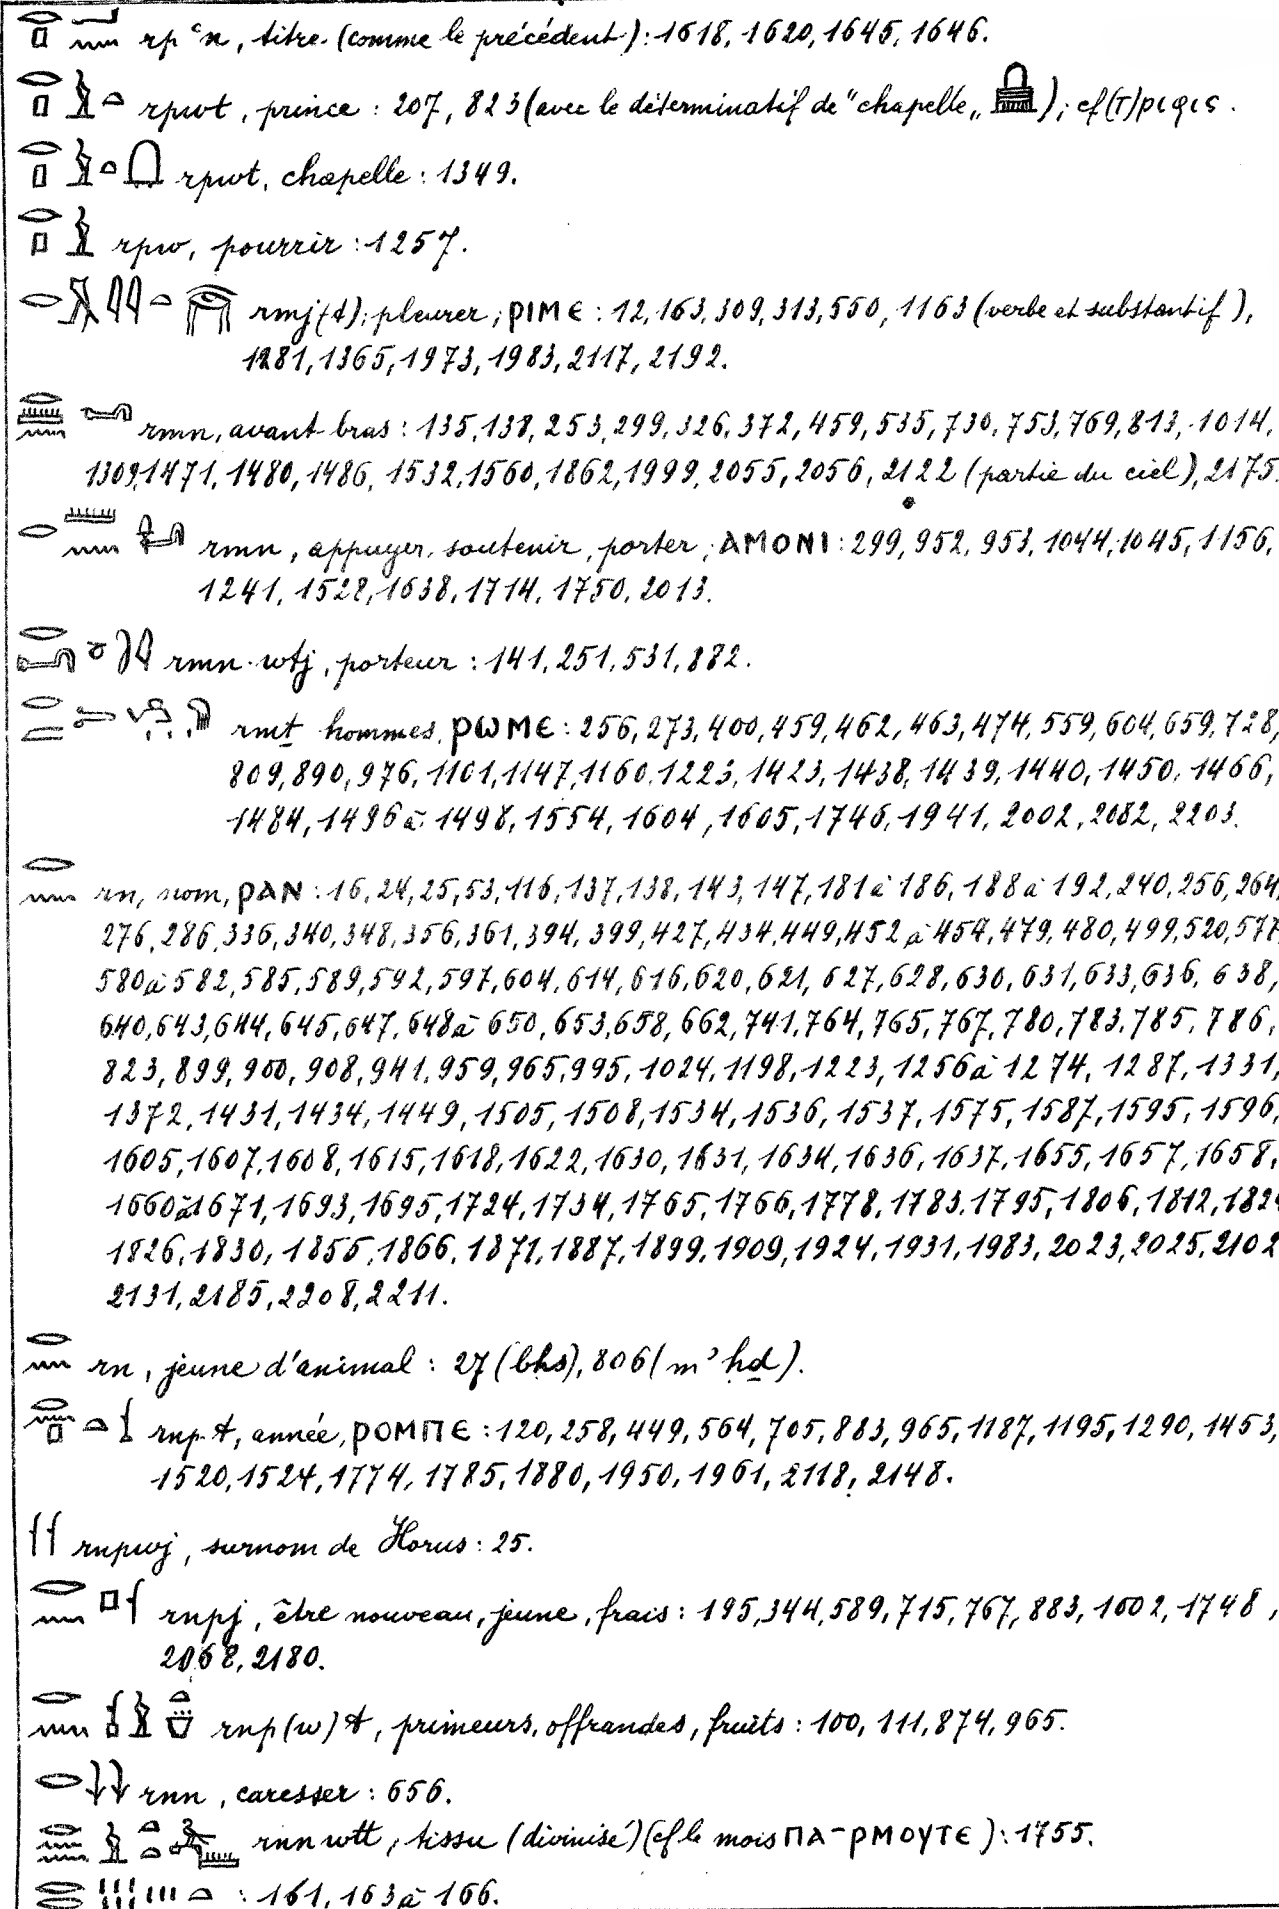 rpꜥn, titre (comme le précédent): 1618, 1620, 1645, 1646.
rpwt, prince : 207, 823 (avec le déterminatif de "chapelle„ ); cf (T)ριφις.
rpwt, chapelle : 1349.
rpw, pourrir : 1257.
rmj(t); pleurer; ⲣⲓⲙⲉ : 12, 163, 309, 313, 550, 1163 (verbe et substantif),
1281, 1365, 1973, 1983, 2117, 2192.
rmn, avant bras : 135, 138, 253, 299, 326, 372, 459, 535, 730, 753, 769, 813, 1014,
1309, 1471, 1480, 1486, 1532, 1560, 1862, 1999, 2055, 2056, 2122 (partie du ciel), 2175.
rmn, appuyer, soutenir, porter, ⲁⲙⲟⲛⲓ : 299, 952, 953, 1044, 1045, 1156,
1241, 1528, 1638, 1714, 1750, 2013.
rmn.wtj, porteur : 141, 251, 531, 882.
rmṯ hommes, ⲣⲱⲙⲉ : 256, 273, 400, 459, 462, 463, 474, 559, 604, 659, 728,
809, 890, 976, 1101, 1147, 1160, 1223, 1423, 1438, 1439, 1440, 1450, 1466,
1484, 1496 à 1498, 1554, 1604, 1605, 1746, 1941, 2002, 2082, 2203.
rn, nom, ⲣⲁⲛ : 16, 24, 25, 53, 116, 137, 138, 143, 147, 181 à 186, 188 à 192, 240, 256, 264,
276, 286, 336, 340, 348, 356, 361, 394, 399, 427, 434, 449, 452 à 454, 479, 480, 499, 520, 577,
580 à 582, 585, 589, 592, 597, 604, 614, 616, 620, 621, 627, 628, 630, 631, 633, 636, 638,
640, 643, 644, 645, 647, 648 à 650, 653, 658, 662, 741, 764, 765, 767, 780, 783, 785, 786,
823, 899, 900, 908, 941, 959, 965, 995, 1024, 1198, 1223, 1256 à 1274, 1287, 1331,
1372, 1431, 1434, 1449, 1505, 1508, 1534, 1536, 1537, 1575, 1587, 1595, 1596,
1605, 1607, 1608, 1615, 1618, 1622, 1630, 1631, 1634, 1636, 1637, 1655, 1657, 1658,
1660 à 1671, 1693, 1695, 1724, 1734, 1765, 1766, 1778, 1783, 1795, 1806, 1812, 1824
1826, 1830, 1855, 1866, 1871, 1887, 1899, 1909, 1924, 1931, 1983, 2023, 2025, 2102
2131, 2185, 2208, 2211.
rn, jeune d'animal : 27 (bḥs), 806 (mꜣ ḥḏ).
rnp.t, année, ⲣⲟⲙⲡⲉ : 120, 258, 449, 564, 705, 883, 965, 1187, 1195, 1290, 1453,
1520, 1524, 1774, 1785, 1880, 1950, 1961, 2118, 2148.
rnpwj, surnom de Horus : 25.
rnpj, être nouveau, jeune, frais : 195, 344, 589, 715, 767, 883, 1002, 1748,
2068, 2180.
rnp(w)t, primeurs, offrandes, fruits : 100, 111, 874, 965.
rnn, caresser : 656.
rnn wtt, tissu (divinisé) (cf le mois ⲡⲁ-ⲣⲙⲟⲩⲧⲉ) : 1755.
: 161, 163 à 166.